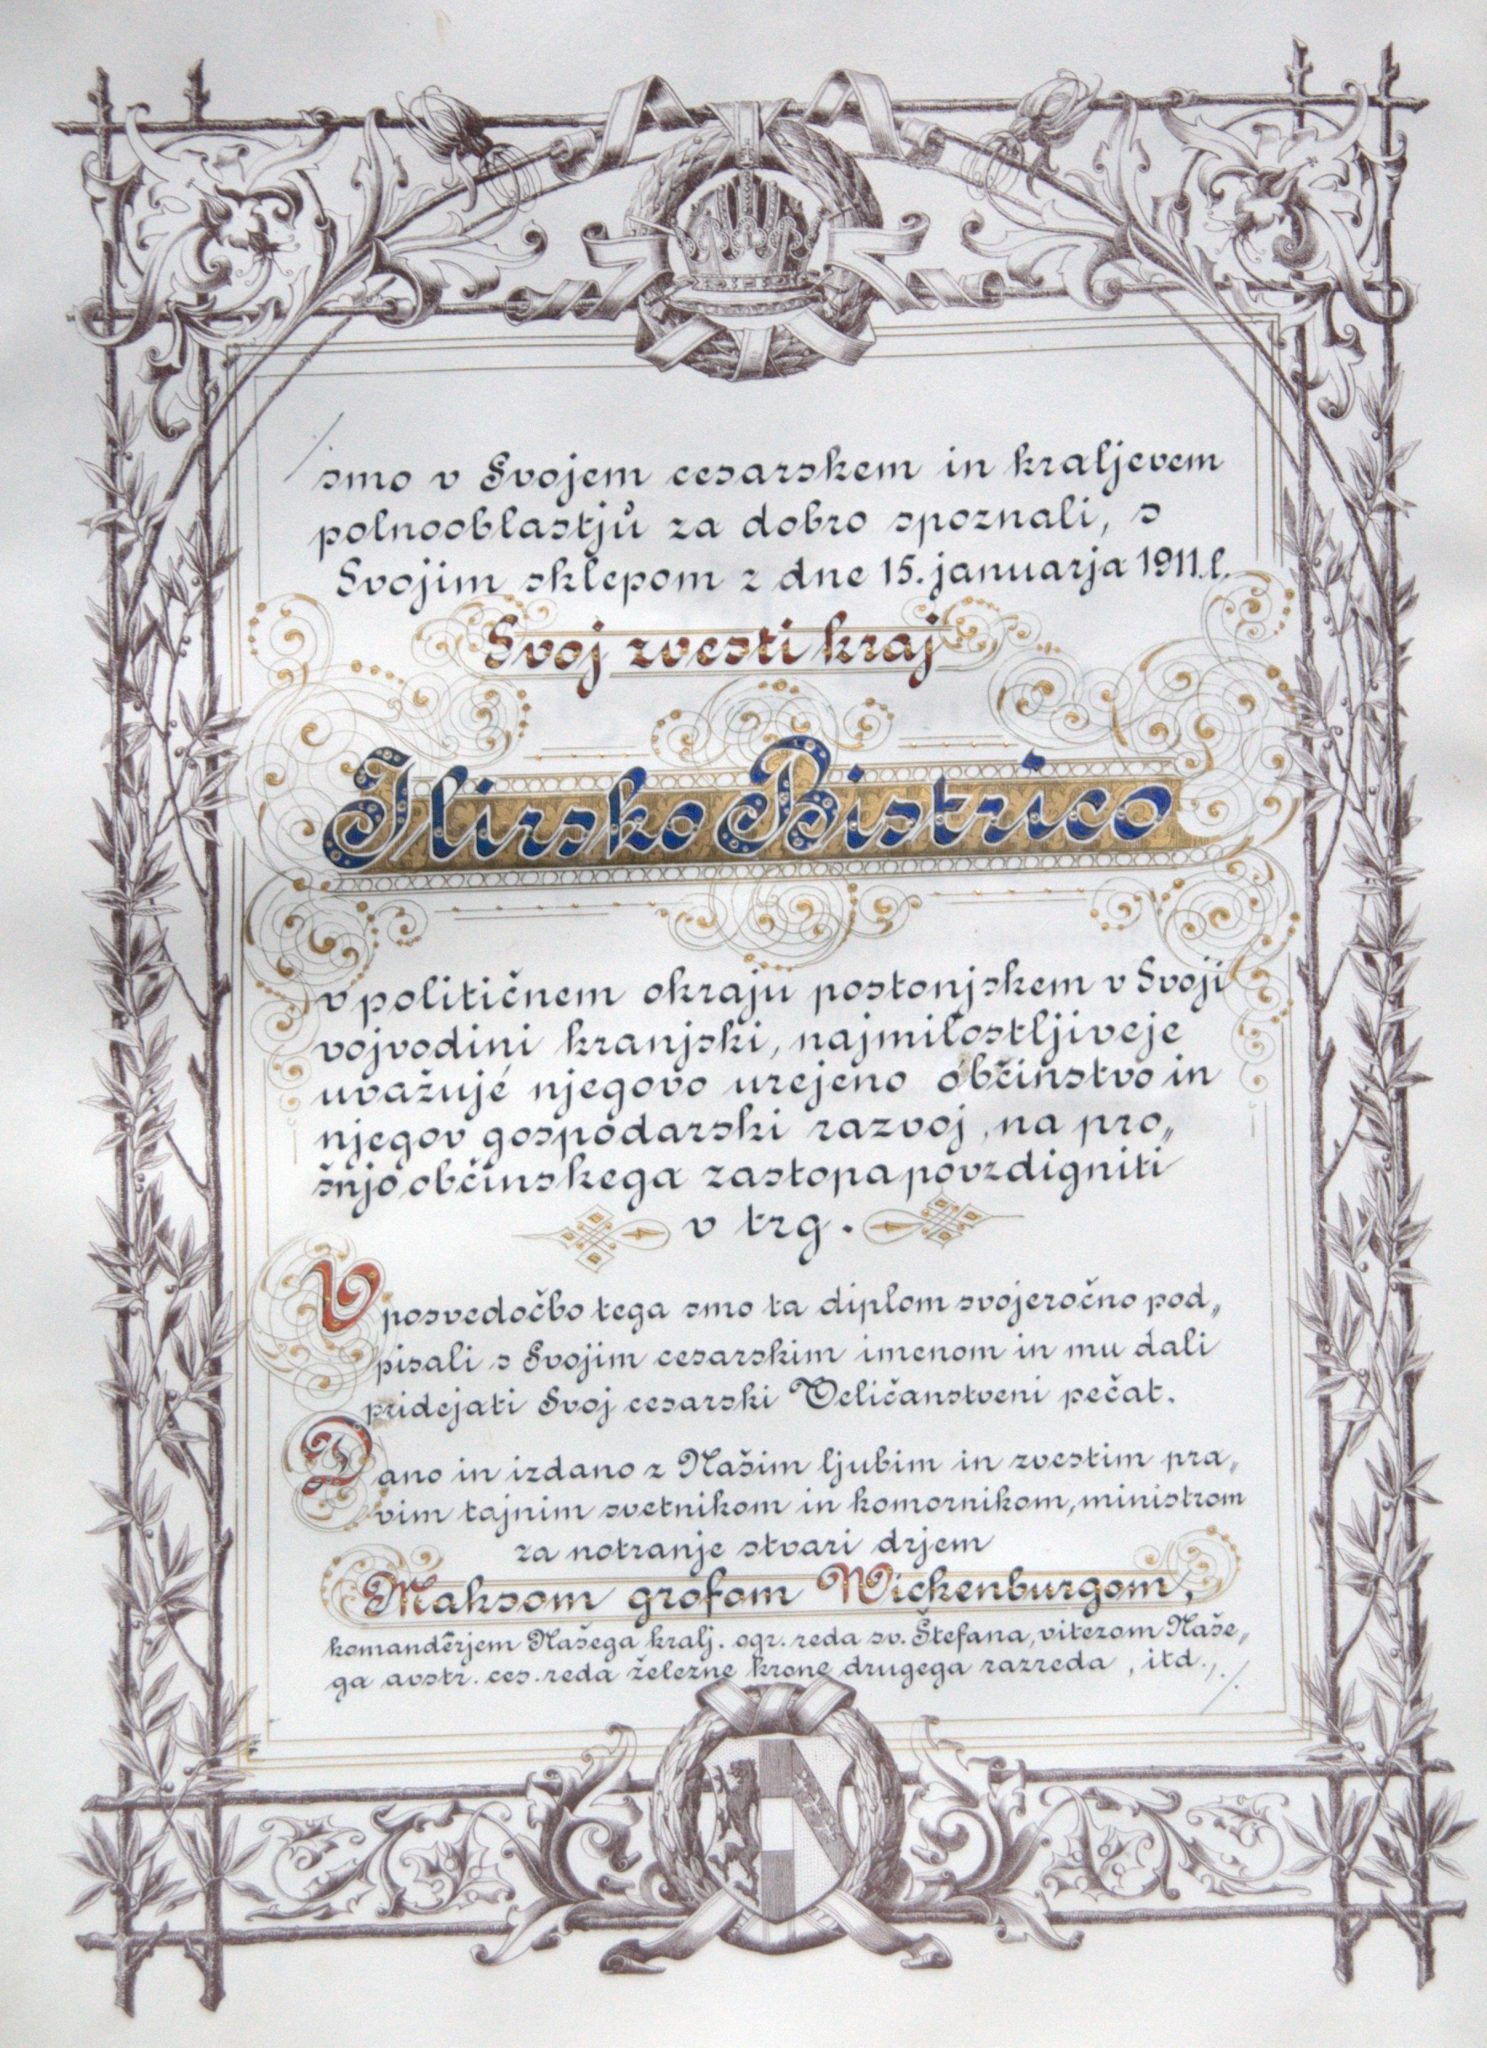 smo v Svojem cesarskem in kraljevem
polnooblastjů za dobro spoznali, s
Svojim sklepom z dne 15. januarja 1911.l.
Svoj zvesti kraj
Ilirsko Bistrico
v političnem okraju postonjskem v Svoji
vojvodini kranjski, najmilostljiveje
uvažujé njegovo urejeno občinstvo in
njegov gospodarski razvoj, na pro„
šnjo občinskega zastopa povzdigniti
v trg.
V posvedočbo tega smo ta diplom svojeročno pod„
pisali s Svojim cesarskim imenom in mu dali
pridejati Svoj cesarski Veličanstveni pečat.
Dano in izdano z Našim ljubim in zvestim pra„
vim tajnim svetnikom in komornikom, ministrom
za notranje stvari drjem
Maksom grofom Wickenburgom,
komandêrjem Našega kralj. ogr. reda sv. Štefana, vitezom Naše„
ga avstr. ces. reda železne krone drugega razreda, itd.,